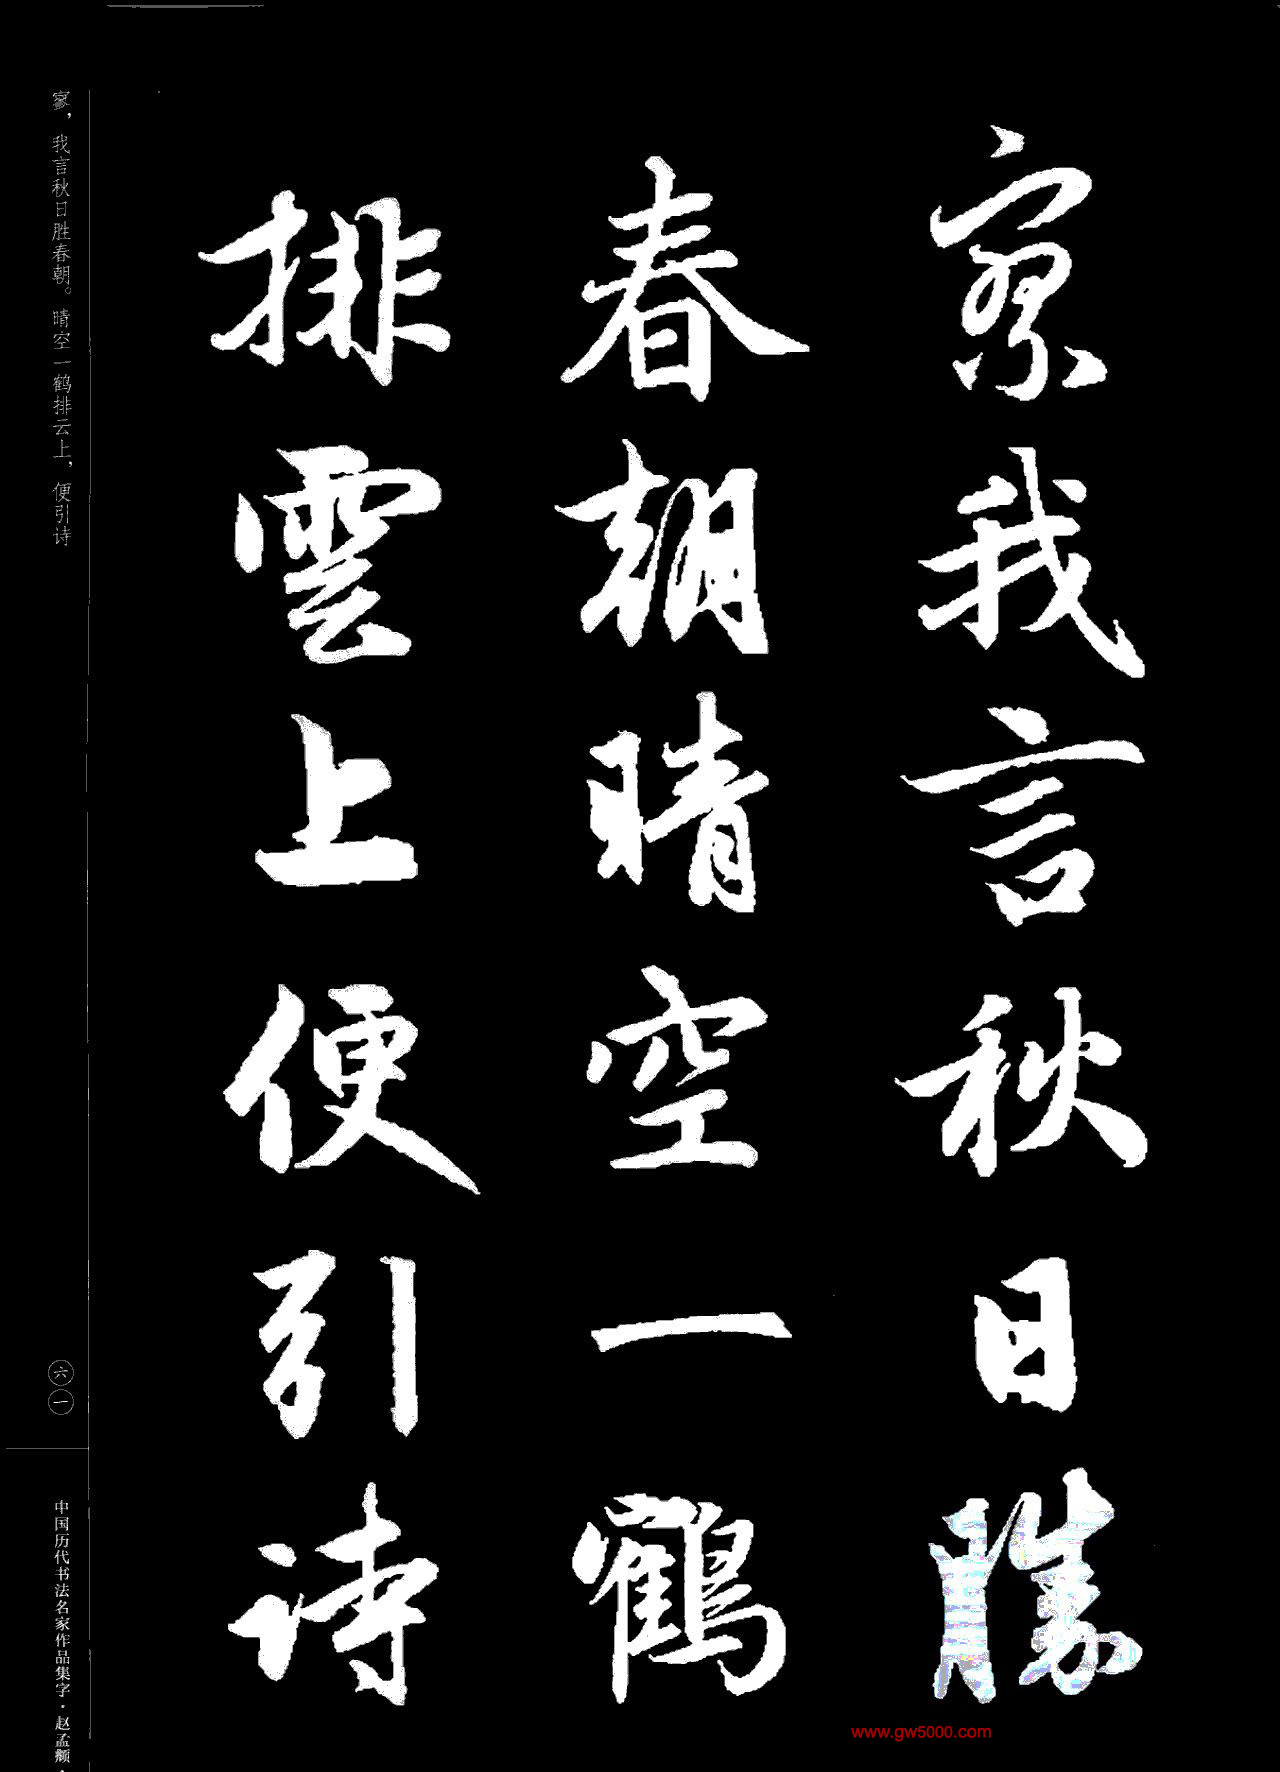 寥我言秋日勝
春朝晴空一鶴
排雲上便引詩
寥，我言秋日胜春朝。晴空一鹤排云上，便引诗
六一
中国历代书法名家作品集字·赵孟頫·
www.gw5000.com